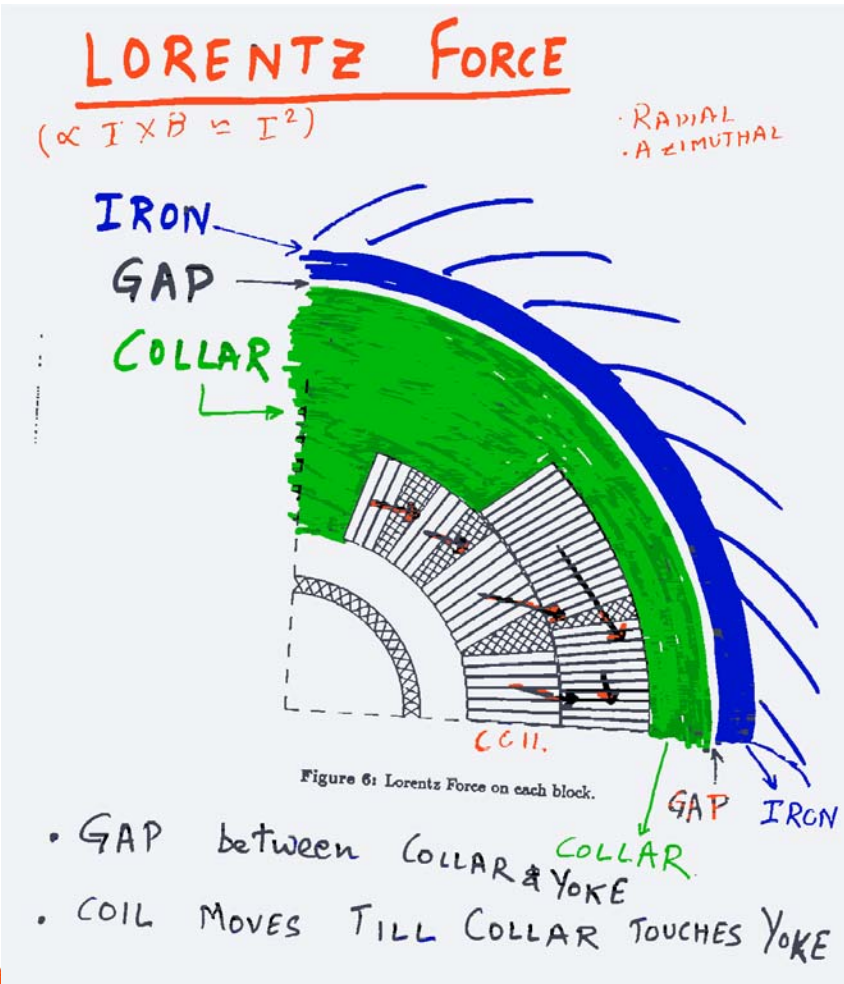 LORENTZ FORCE
(∝ I X B ≃ I²)
· RADIAL
· AZIMUTHAL
IRON
GAP
COLLAR
COIL
Figure 6: Lorentz Force on each block.
GAP
IRON
COLLAR
· GAP between COLLAR & YOKE
· COIL MOVES TILL COLLAR TOUCHES YOKE